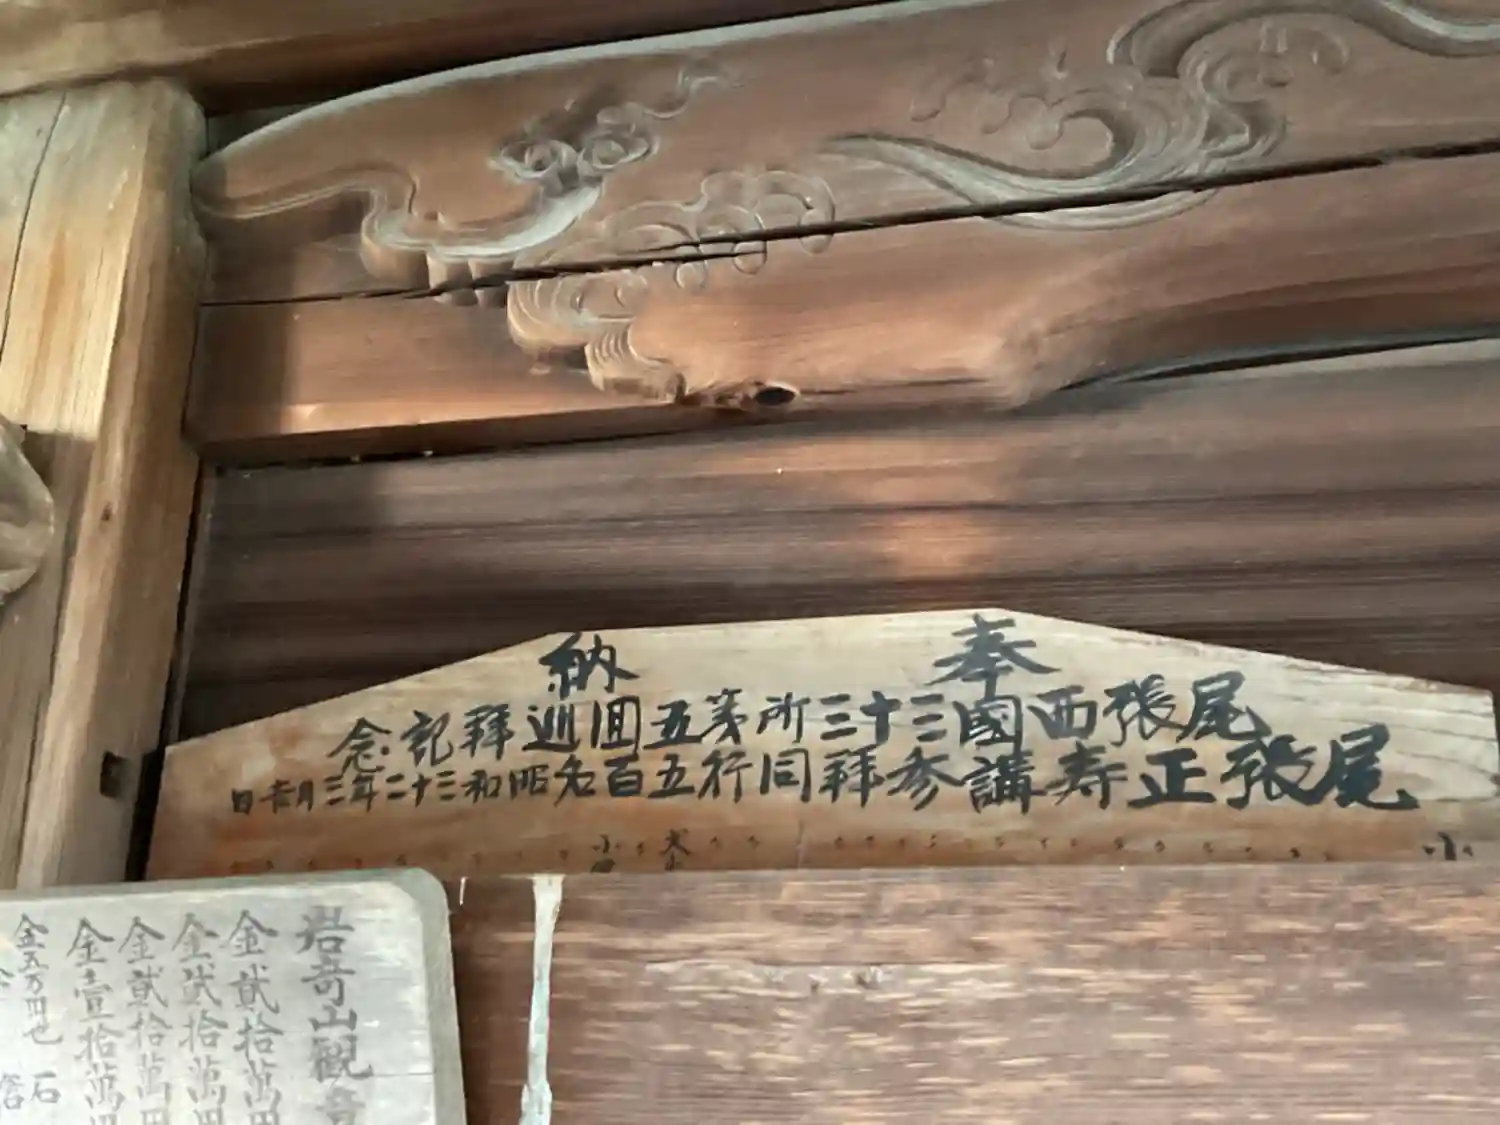 奉納
尾張西國三十三所第五回巡拜記念
尾張正寿講参拜同行五百名昭和三十二年三月吉日
岩奇山観音
金貳拾萬円
金貳拾萬円
金貳拾萬円
金壹拾萬円
金五万円也 石